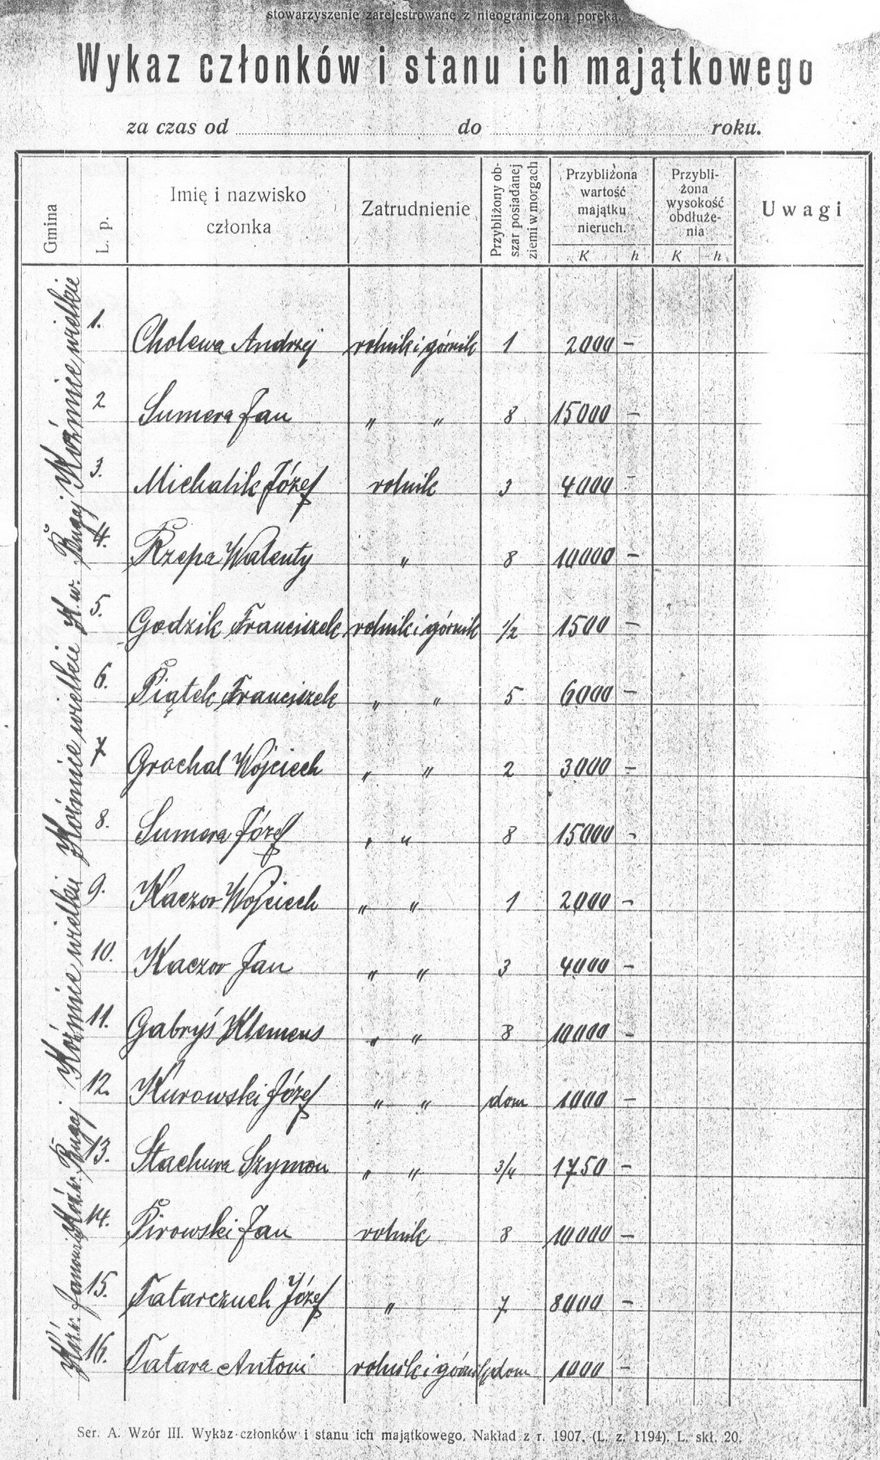 stowarzyszenie zarejestrowane z nieograniczoną poręką.
Wykaz członków i stanu ich majątkowego
za czas od do roku.
Gmina L. p. Imię i nazwisko członka Zatrudnienie Przybliżony obszar posiadanej ziemi w morgach Przybliżona wartość majątku nieruch. Przybliżona wysokość obdłużenia Uwagi
K h K h
1. Cholewa Andrzej rolnik i górnik 1 2000 –
2 Sumera Jan " " 8 15000 –
3. Michalik Józef rolnik 3 4000 -
4. Rzepa Walenty " 8 10000 –
5. Godzik Franciszek rolnik i górnik 1/2 1500 –
6. Piątek Franciszek " " 5 6000 –
7 Grochal Wojciech " " 2 3000 –
8. Sumera Józef " " 8 15000 -
9. Kaczor Wojciech " " 1 2000 –
10. Kaczor Jan " " 3 4000 –
11. Gabryś Klemens " " 8 10000 -
12. Kurowski Józef " " dom 1000 –
13. Stachura Szymon " " 3/4 1750 –
14. Pirowski Jan rolnik 8 10000 –
15. Tatarczuch Józef " 7 8000 –
16. Tatara Antoni rolnik i górnik dom 1000 –
Koźmice wielkie
K. w. Bugaj
Koźmice wielkie
Koźmice wielkie
Koź. w. Bugaj
Ser. A. Wzór III. Wykaz członków i stanu ich majątkowego. Nakład z r. 1907. (L. z. 1194). L. skł. 20.